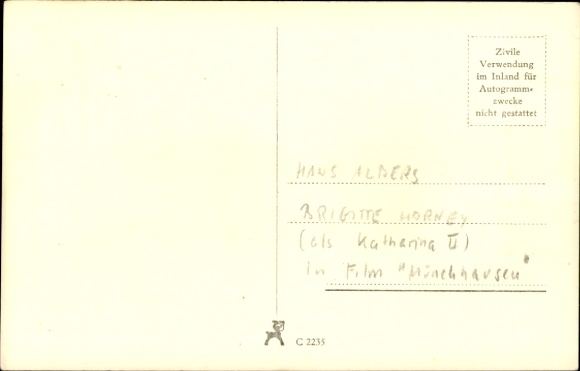 Zivile
Verwendung
im Inland für
Autogramm-
zwecke
nicht gestattet
HANS ALBERS
BRIGITTE HORNEY
(als Katharina II)
in Film "Münchhausen"
C 2235